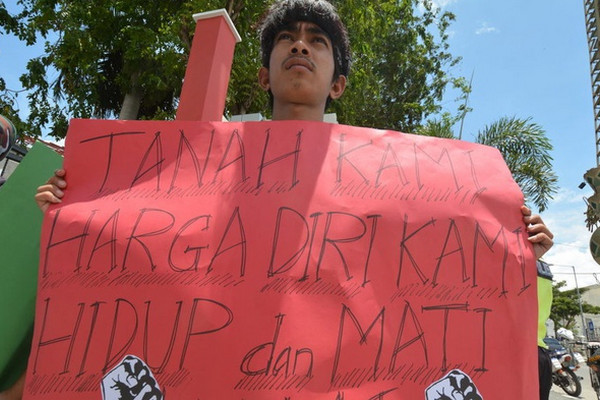 TANAH KAMI
HARGA DIRI KAMI
HIDUP dan MATI